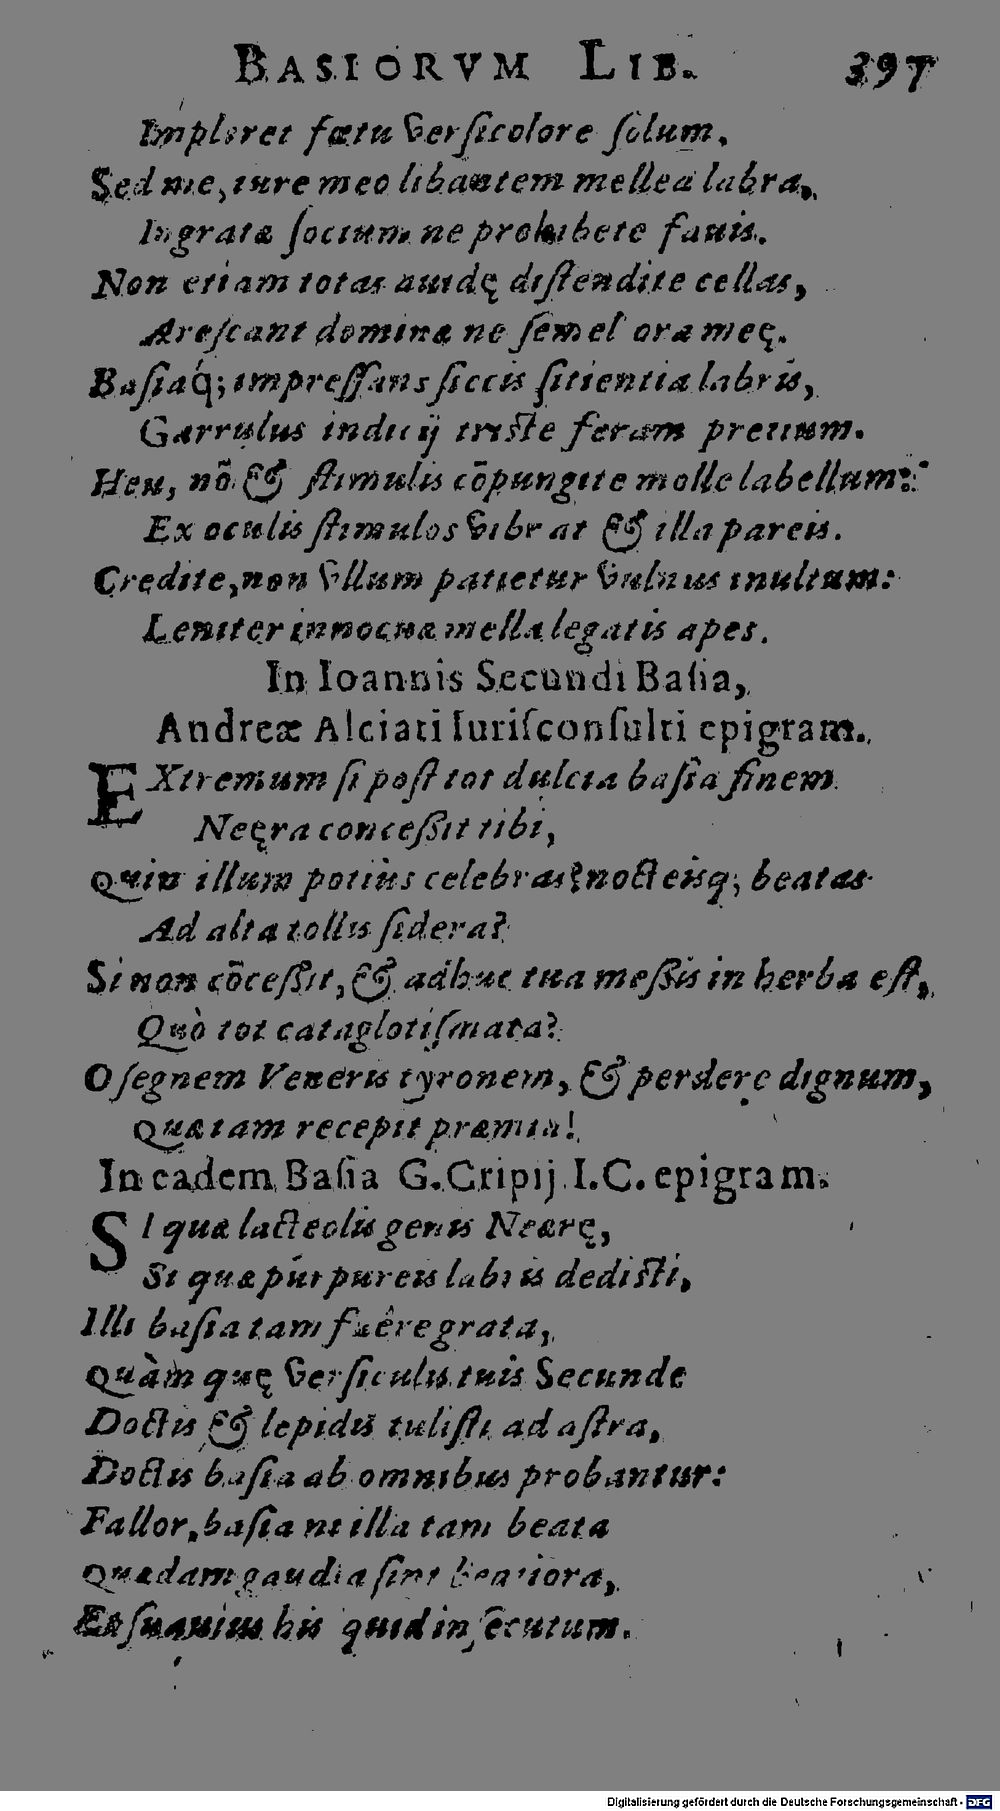 BASIORVM LIB. 397
Impleret fœtu versicolore solum.
Sed me, iure meo libantem mellea labra,
Ingratæ socium ne prohibete fauis.
Non etiam totas auidę distendite cellas,
Arescant dominæ ne semel ora meę.
Basiaq́; impressans siccis sitientia labris,
Garrulus indicij triste feram pretium.
Heu, nõ & stimulis cõpungite molle labellum:
Ex oculis stimulos vibrat & illa pareis.
Credite, non vllum patietur vulnus inultum:
Leniter innocuæ mella legatis apes.
In Ioannis Secundi Basia,
Andreæ Alciati Iurisconsulti epigram.
EXtremum si post tot dulcia basia finem
Neęra concessit tibi,
Quin illum potiùs celebras? nocteisq; beatas
Ad alta tollis sidera?
Si non cõcessit, & adhuc tua messis in herba est,
Quò tot cataglotismata?
O segnem Veneris tyronem, & perdere dignum,
Quæ iam recepit præmia!
In eadem Basia G. Cripij I.C. epigram.
SI quæ lacteolis genis Neærę,
Si quæ purpureis labris dedisti,
Illi basia tam fuêre grata,
Quàm quę versiculis tuis Secunde
Doctis & lepidis tulisti ad astra,
Doctis basia ab omnibus probantur:
Fallor, basia ni illa tam beata
Quædam gaudia sint beatiora,
Et suauius his quid insecutum.
Digitalisierung gefördert durch die Deutsche Forschungsgemeinschaft - DFG